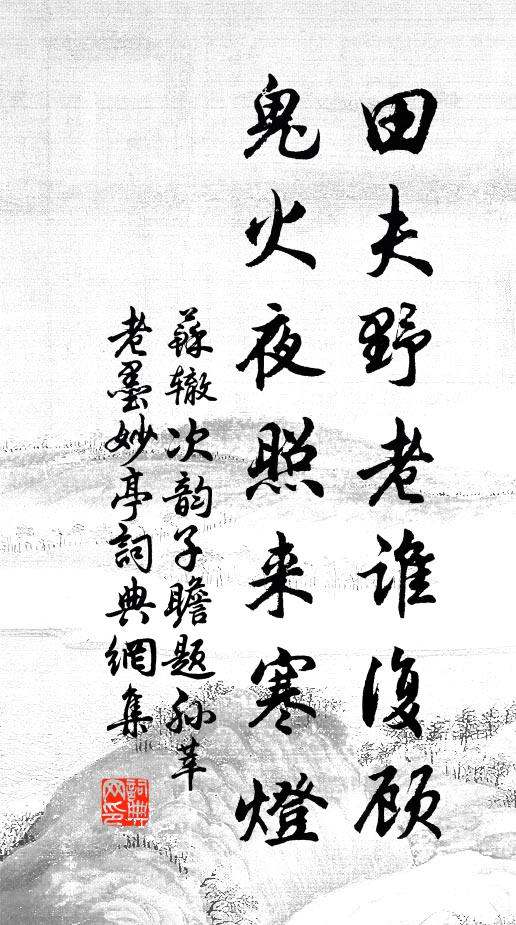 田夫野老谁復顾
鬼火夜照来寒燈
蘇辙次韵子瞻题孙莘
老墨妙亭詞典網集
詞典
网印